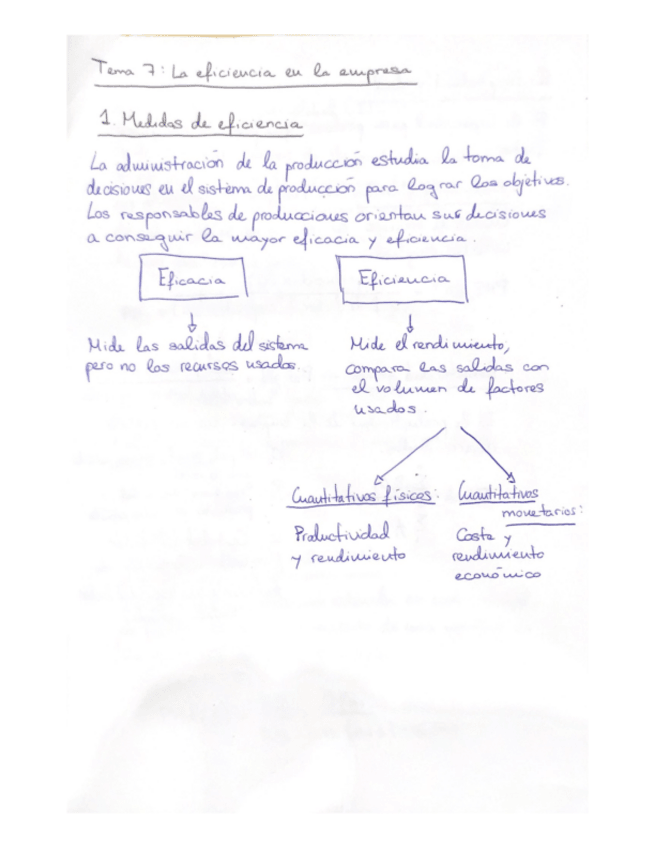 Tema 7: La eficiencia en la empresa
1. Medidas de eficiencia
La administración de la producción estudia la toma de
decisiones en el sistema de producción para lograr los objetivos.
Los responsables de producciones orientan sus decisiones
a conseguir la mayor eficacia y eficiencia.
Eficacia
Mide las salidas del sistema
pero no los recursos usados.
Eficiencia
Mide el rendimiento,
compara las salidas con
el volumen de factores
usados.
Cuantitativos físicos:
Productividad
y rendimiento
Cuantitativos
monetarios:
Coste y
rendimiento
económico